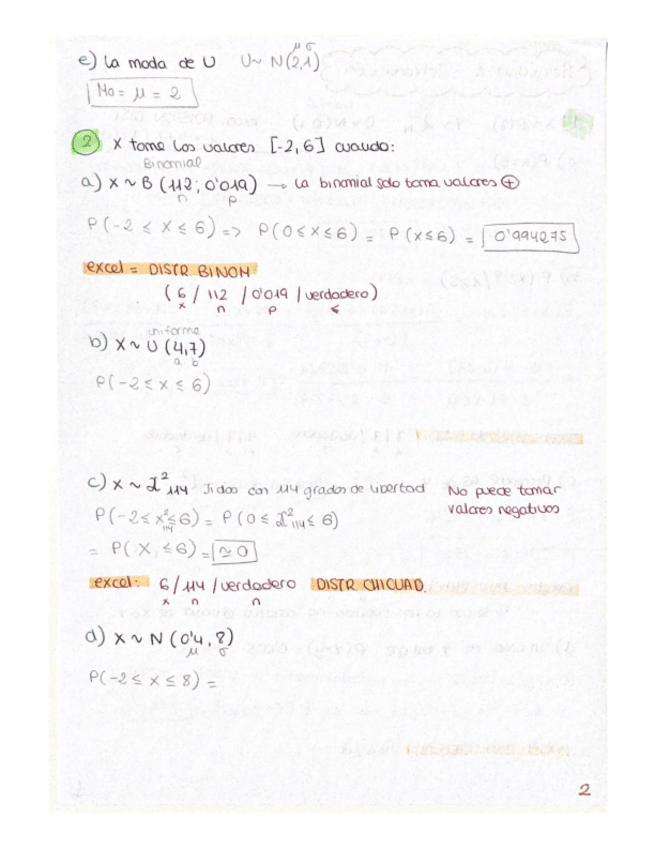 e) La moda de U U~ N(2,1)
μ σ
Mo = μ = 2
2 X tome los valores [-2,6] cuando:
Binomial
a) X ~ B (112; 0'019) → La binomial solo toma valores ⊕
n p
P(-2 ≤ x ≤ 6) => P(0 ≤ x ≤ 6) = P(x ≤ 6) = 0'994275
excel = DISTR BINOM
(6 / 112 / 0'019 / verdadero)
x n p ≤
uniforme
b) X ~ U (4,7)
a b
P(-2 ≤ x ≤ 6)
c) X ~ χ²114 Ji dos con 114 grados de libertad No puede tomar
valores negativos
P(-2 ≤ x²114 ≤ 6) = P(0 ≤ χ²114 ≤ 6)
= P(X ≤ 6) = ≃ 0
excel: 6 / 114 / verdadero DISTR CHICUAD.
x n n
d) X ~ N (0'4, 8)
μ σ
P(-2 ≤ x ≤ 8) =
2